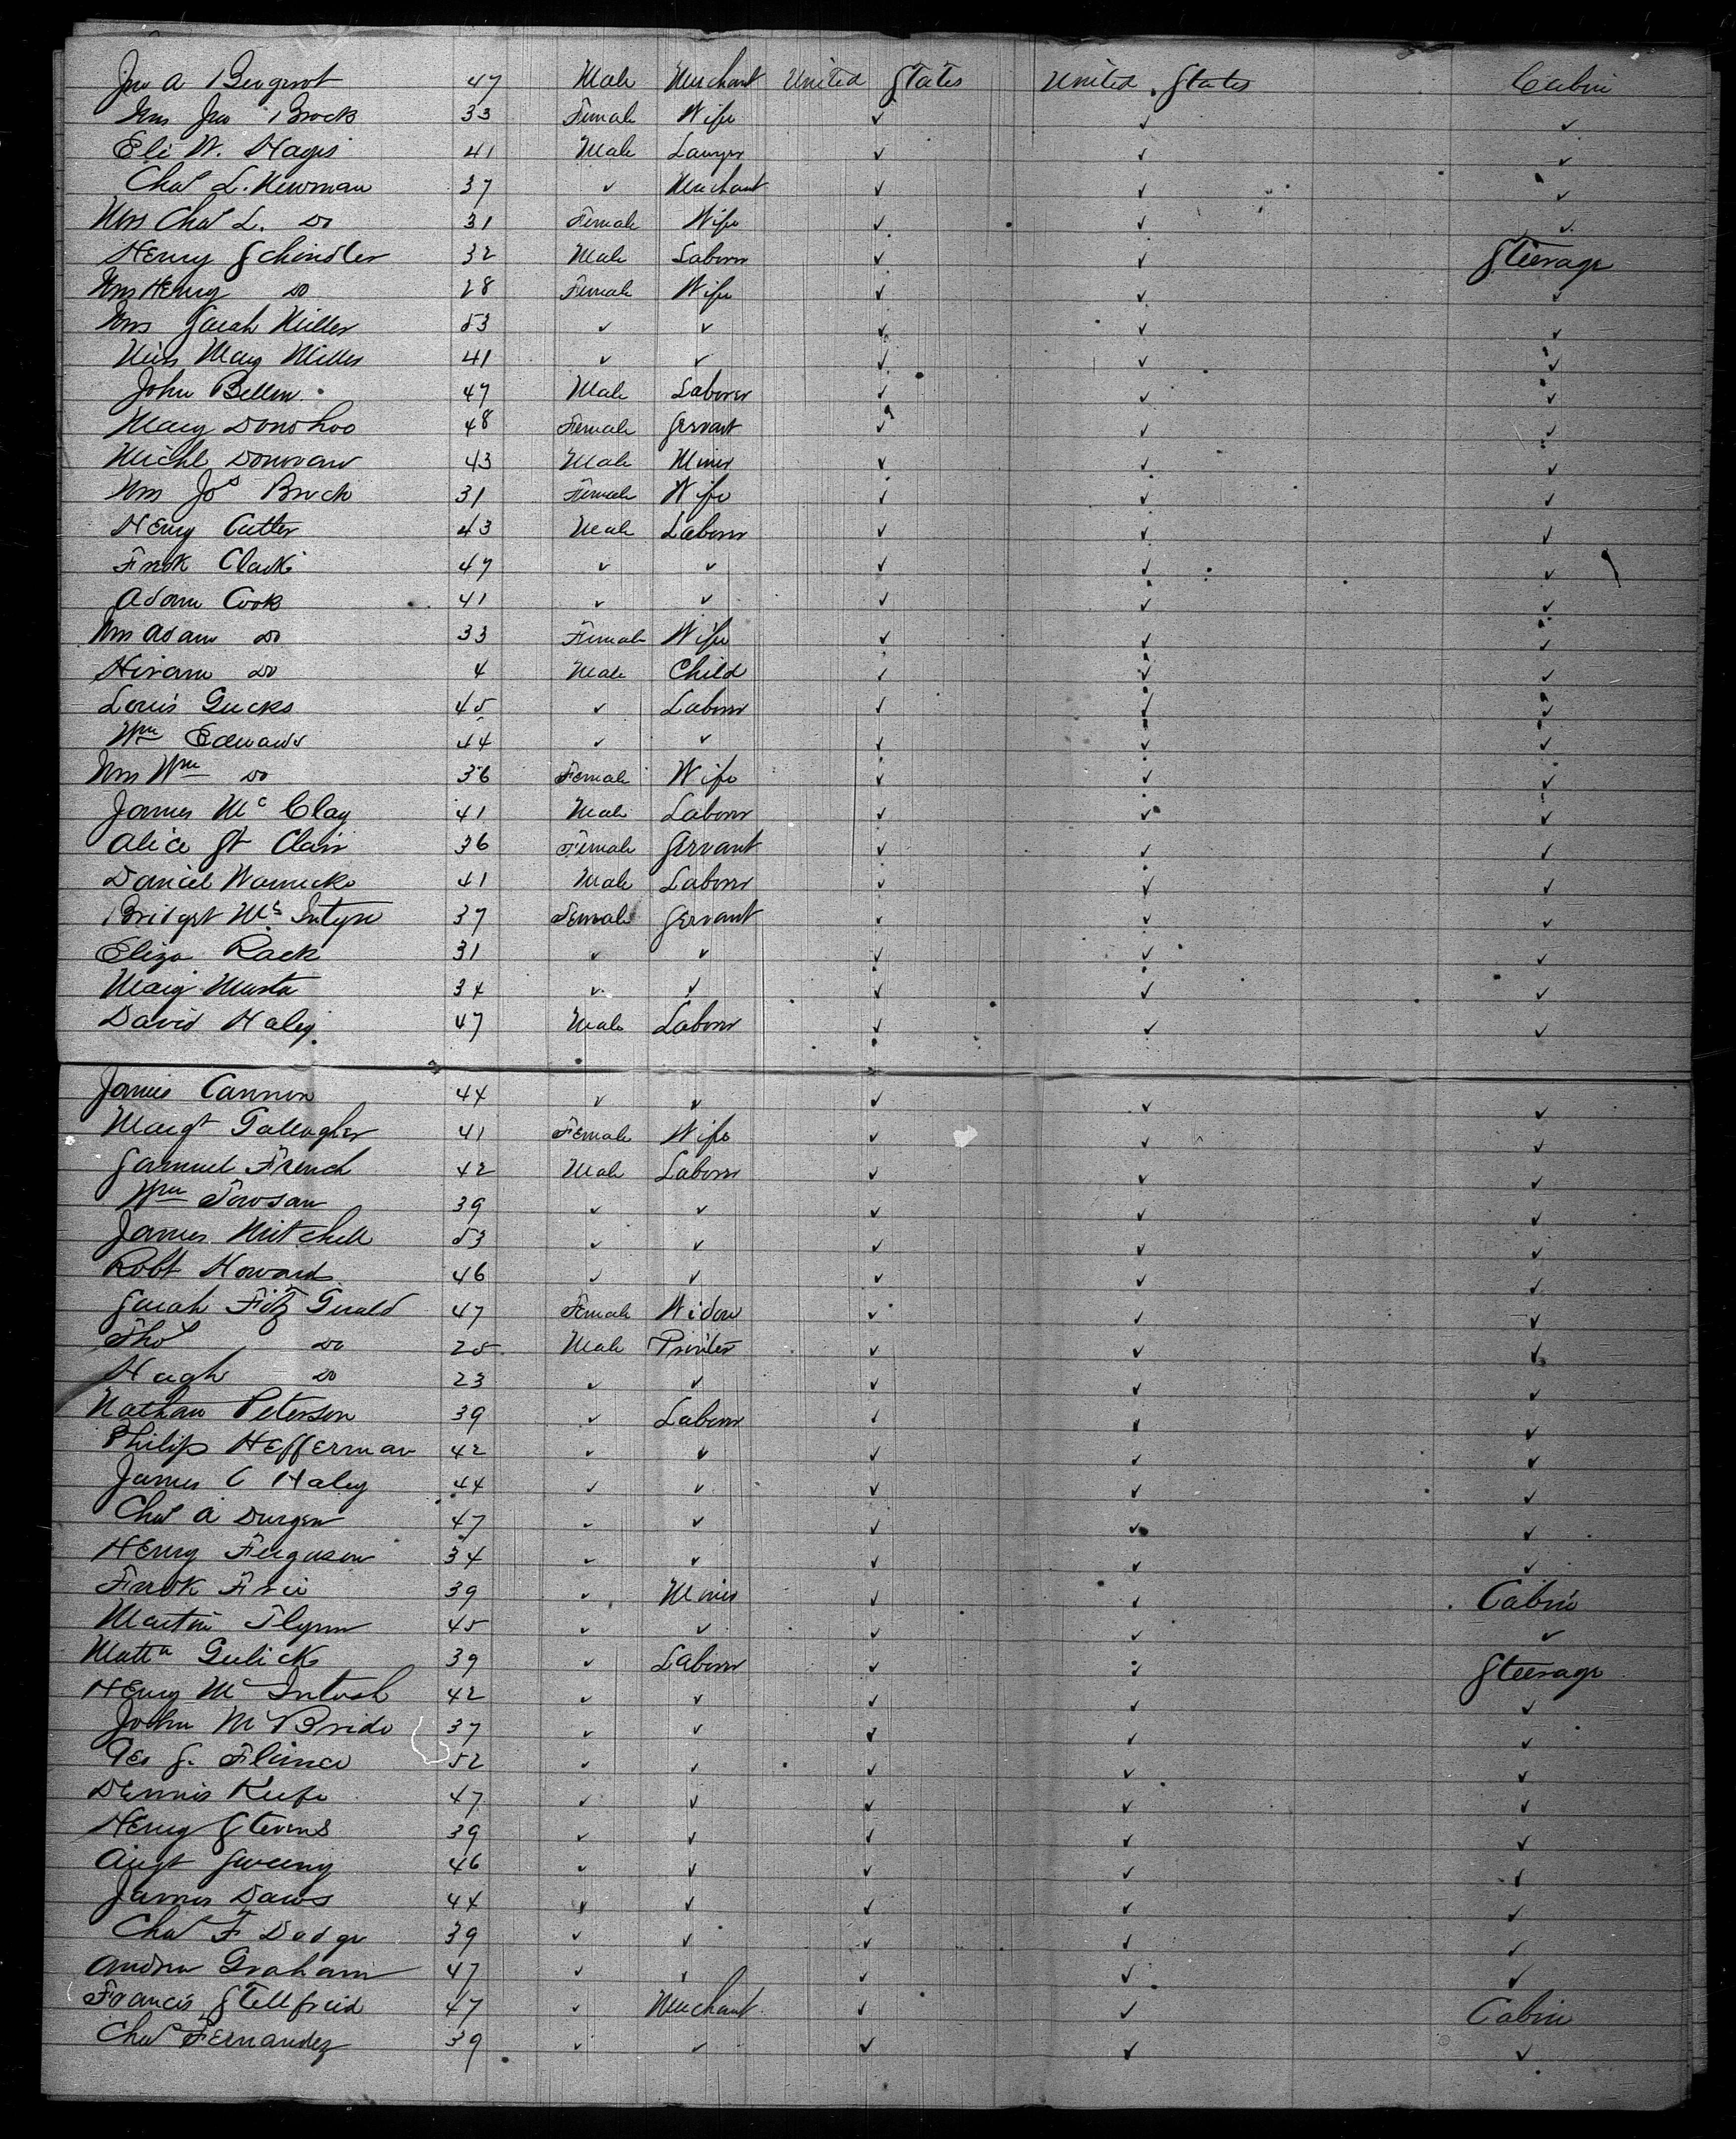 Jno A 47 Male Merchant United States United States Cabin
Mrs Jno Brock 33 Female Wife ✓ ✓ ✓
Eli W. Hayes 41 Male Lawyer ✓ ✓ ✓
Chas L. Newman 37 ✓ Merchant ✓ ✓ ✓
Mrs Chas L. Do 31 Female Wife ✓ ✓ ✓
Henry Schindler 32 Male Laborer ✓ ✓ Steerage
Mrs Henry Do 28 Female Wife ✓ ✓ ✓
Mrs Sarah Miller 53 ✓ ✓ ✓ ✓ ✓
Miss Mary Miller 41 ✓ ✓ ✓ ✓ ✓
John Bellew 47 Male Laborer ✓ ✓ ✓
Mary Donohoo 48 Female Servant ✓ ✓ ✓
Michl Donovan 43 Male Miner ✓ ✓ ✓
Mrs Jos 31 Female Wife ✓ ✓ ✓
Henry Cutter 43 Male Laborer ✓ ✓ ✓
Frnk Clark 47 ✓ ✓ ✓ ✓ ✓
Adam Cook 41 ✓ ✓ ✓ ✓ ✓
Mrs Adam Do 33 Female Wife ✓ ✓ ✓
Hiram Do 4 Male Child ✓ ✓ ✓
Louis Gucks 45 ✓ Laborer ✓ ✓ ✓
Wm Edwards 44 ✓ ✓ ✓ ✓ ✓
Mrs Wm Do 36 Female Wife ✓ ✓ ✓
James Mc Clay 41 Male Laborer ✓ ✓ ✓
Alice St Clair 36 Female Servant ✓ ✓ ✓
Daniel Warnecke 41 Male Laborer ✓ ✓ ✓
Bridget Mc Intyre 37 Female Servant ✓ ✓ ✓
Eliza Rack 31 ✓ ✓ ✓ ✓ ✓
Mary 34 ✓ ✓ ✓ ✓ ✓
David Haley 47 Male Laborer ✓ ✓ ✓
James Cannon 44 ✓ ✓ ✓ ✓ ✓
Margt Gallagher 41 Female Wife ✓ ✓ ✓
Samuel French 42 Male Laborer ✓ ✓ ✓
Wm Towsan 39 ✓ ✓ ✓ ✓ ✓
James Mitchell 53 ✓ ✓ ✓ ✓ ✓
Robt Howard 46 ✓ ✓ ✓ ✓ ✓
Sarah Fitz Gerald 47 Female Widow ✓ ✓ ✓
Thos Do 25 Male Printer ✓ ✓ ✓
Hugh Do 23 ✓ ✓ ✓ ✓ ✓
Nathan Peterson 39 ✓ Laborer ✓ ✓ ✓
Philip Hefferman 42 ✓ ✓ ✓ ✓ ✓
James C Haley 44 ✓ ✓ ✓ ✓ ✓
Chas A Durgen 47 ✓ ✓ ✓ ✓ ✓
Henry Ferguson 34 ✓ ✓ ✓ ✓ ✓
Frnk Frie 39 ✓ Miner ✓ ✓ Cabin
Martin Flynn 45 ✓ ✓ ✓ ✓ ✓
Matt Gulick 39 ✓ Laborer ✓ ✓ Steerage
Henry Mc Intosh 42 ✓ ✓ ✓ ✓ ✓
John Mc Bride 37 ✓ ✓ ✓ ✓ ✓
Geo S. 52 ✓ ✓ ✓ ✓ ✓
Dennis Keefe 47 ✓ ✓ ✓ ✓ ✓
Henry Stevens 39 ✓ ✓ ✓ ✓ ✓
Augt Sweeny 46 ✓ ✓ ✓ ✓ ✓
James Daws 44 ✓ ✓ ✓ ✓ ✓
Chas F Dodge 39 ✓ ✓ ✓ ✓ ✓
Andrew Graham 47 ✓ ✓ ✓ ✓ ✓
Francis Stellfreid 47 ✓ Merchant ✓ ✓ Cabin
Chas Fernandez 39 ✓ ✓ ✓ ✓ ✓